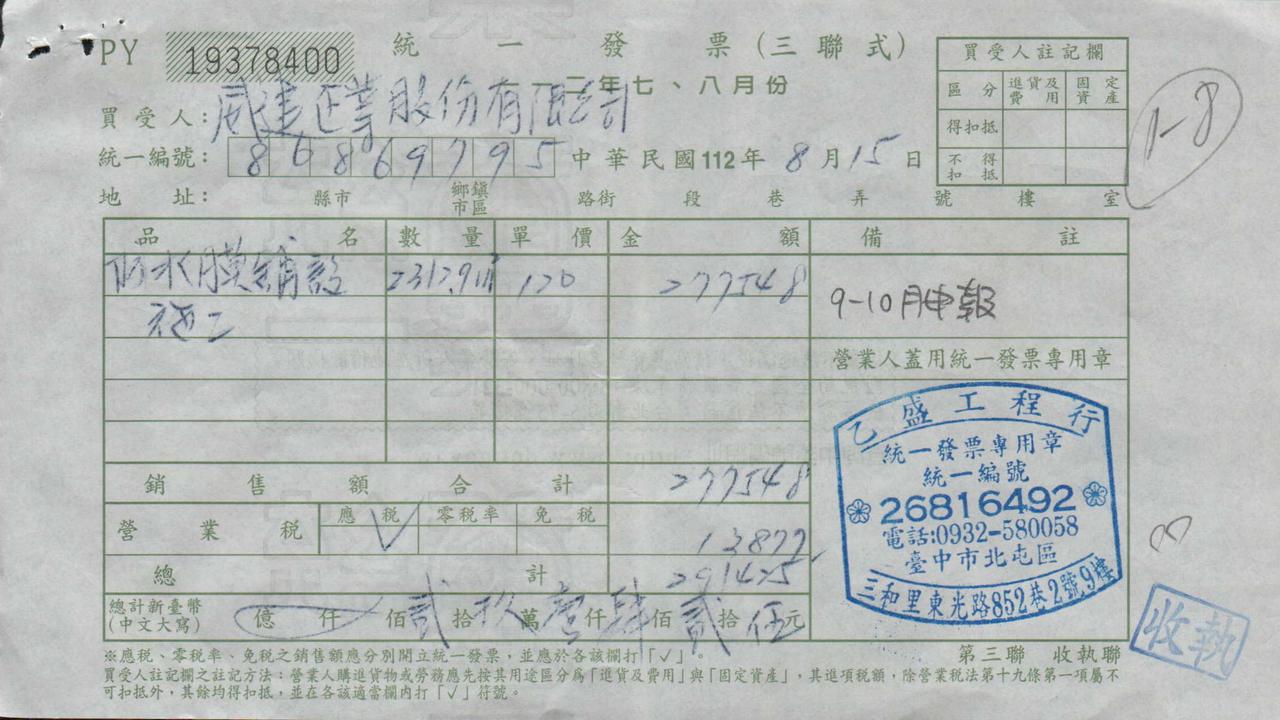 PY 19378400 統一發票(三聯式)
一一二年七、八月份
買受人: 威建企業股份有限公司
統一編號: 86869795 中華民國112年8月15日
地址: 縣市 鄉鎮市區 路街 段 巷 弄 號 樓 室
買受人註記欄
區分 進貨及費用 固定資產
得扣抵
不得扣抵
1-8
品名 數量 單價 金額 備註
防水膜鋪設 2312.9㎡ 120 277548
施工
9-10月申報
營業人蓋用統一發票專用章
銷售額合計 277548
營業稅 應稅 零稅率 免稅
✓ 13877
總計 291425
總計新臺幣
(中文大寫) 億 仟 佰 貳拾玖萬壹仟肆佰貳拾伍元
乙盛工程行
統一發票專用章
統一編號
26816492
電話:0932-580058
臺中市北屯區
三和里東光路852巷2號9樓
※應稅、零稅率、免稅之銷售額應分別開立統一發票，並應於各該欄打「✓」。
第三聯 收執聯
買受人註記欄之註記方法：營業人購進貨物或勞務應先按其用途區分為「進貨及費用」與「固定資產」，其進項稅額，除營業稅法第十九條第一項屬不
可扣抵外，其餘均得扣抵，並在各該適當欄內打「✓」符號。
收執